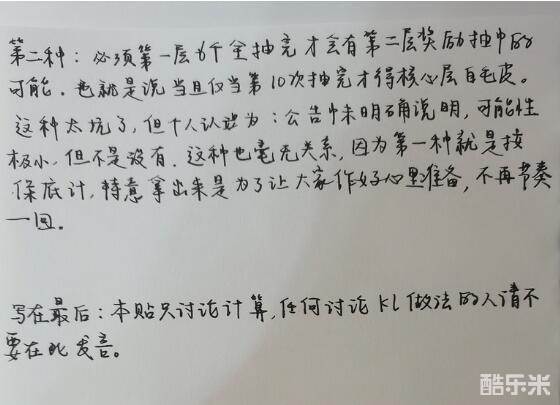 第二种：必须第一层6个全抽完才会有第二层奖励抽中的
可能。也就是说当且仅当第10次抽完才得核心层自毛皮。
这种太坑了，但个人认为：公告中未明确说明，可能性
极小，但不是没有。这种也毫无关系，因为第一种就是按
保底计，特意拿出来是为了让大家作好心里准备，不再节奏
一回。
写在最后：本贴只讨论计算，任何讨论KL做法的人请不
要在此发言。
酷乐米